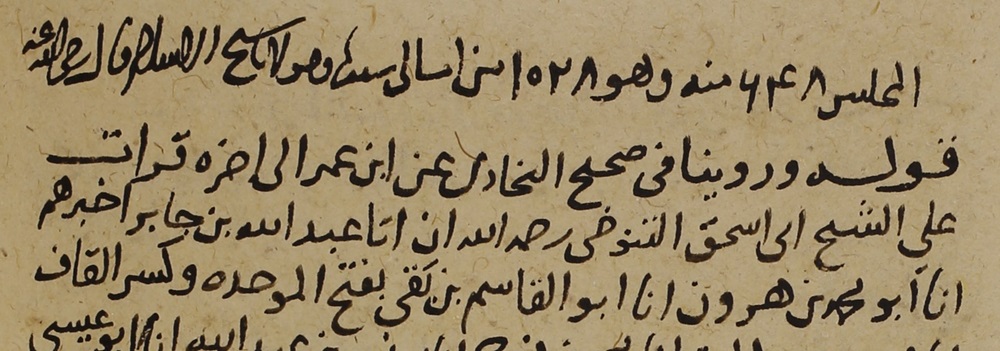 المجلس ٦٤٨ منه وهو ١٥٢٨ من امالى سيدنا ومولانا شيخ الاسلام قال رضى الله عنه
قوله وروينا فى صحيح البخارى عن ابن عمر الى اخره قرات
على الشيخ ابى اسحق التنوخى رحمه الله ان ابا عبد الله بن جابر اخبرهم
انا أبو محمد بن هرون انا ابو القاسم بن بَقى بفتح الموحده وكسر القاف
الله انا ابو عيسى